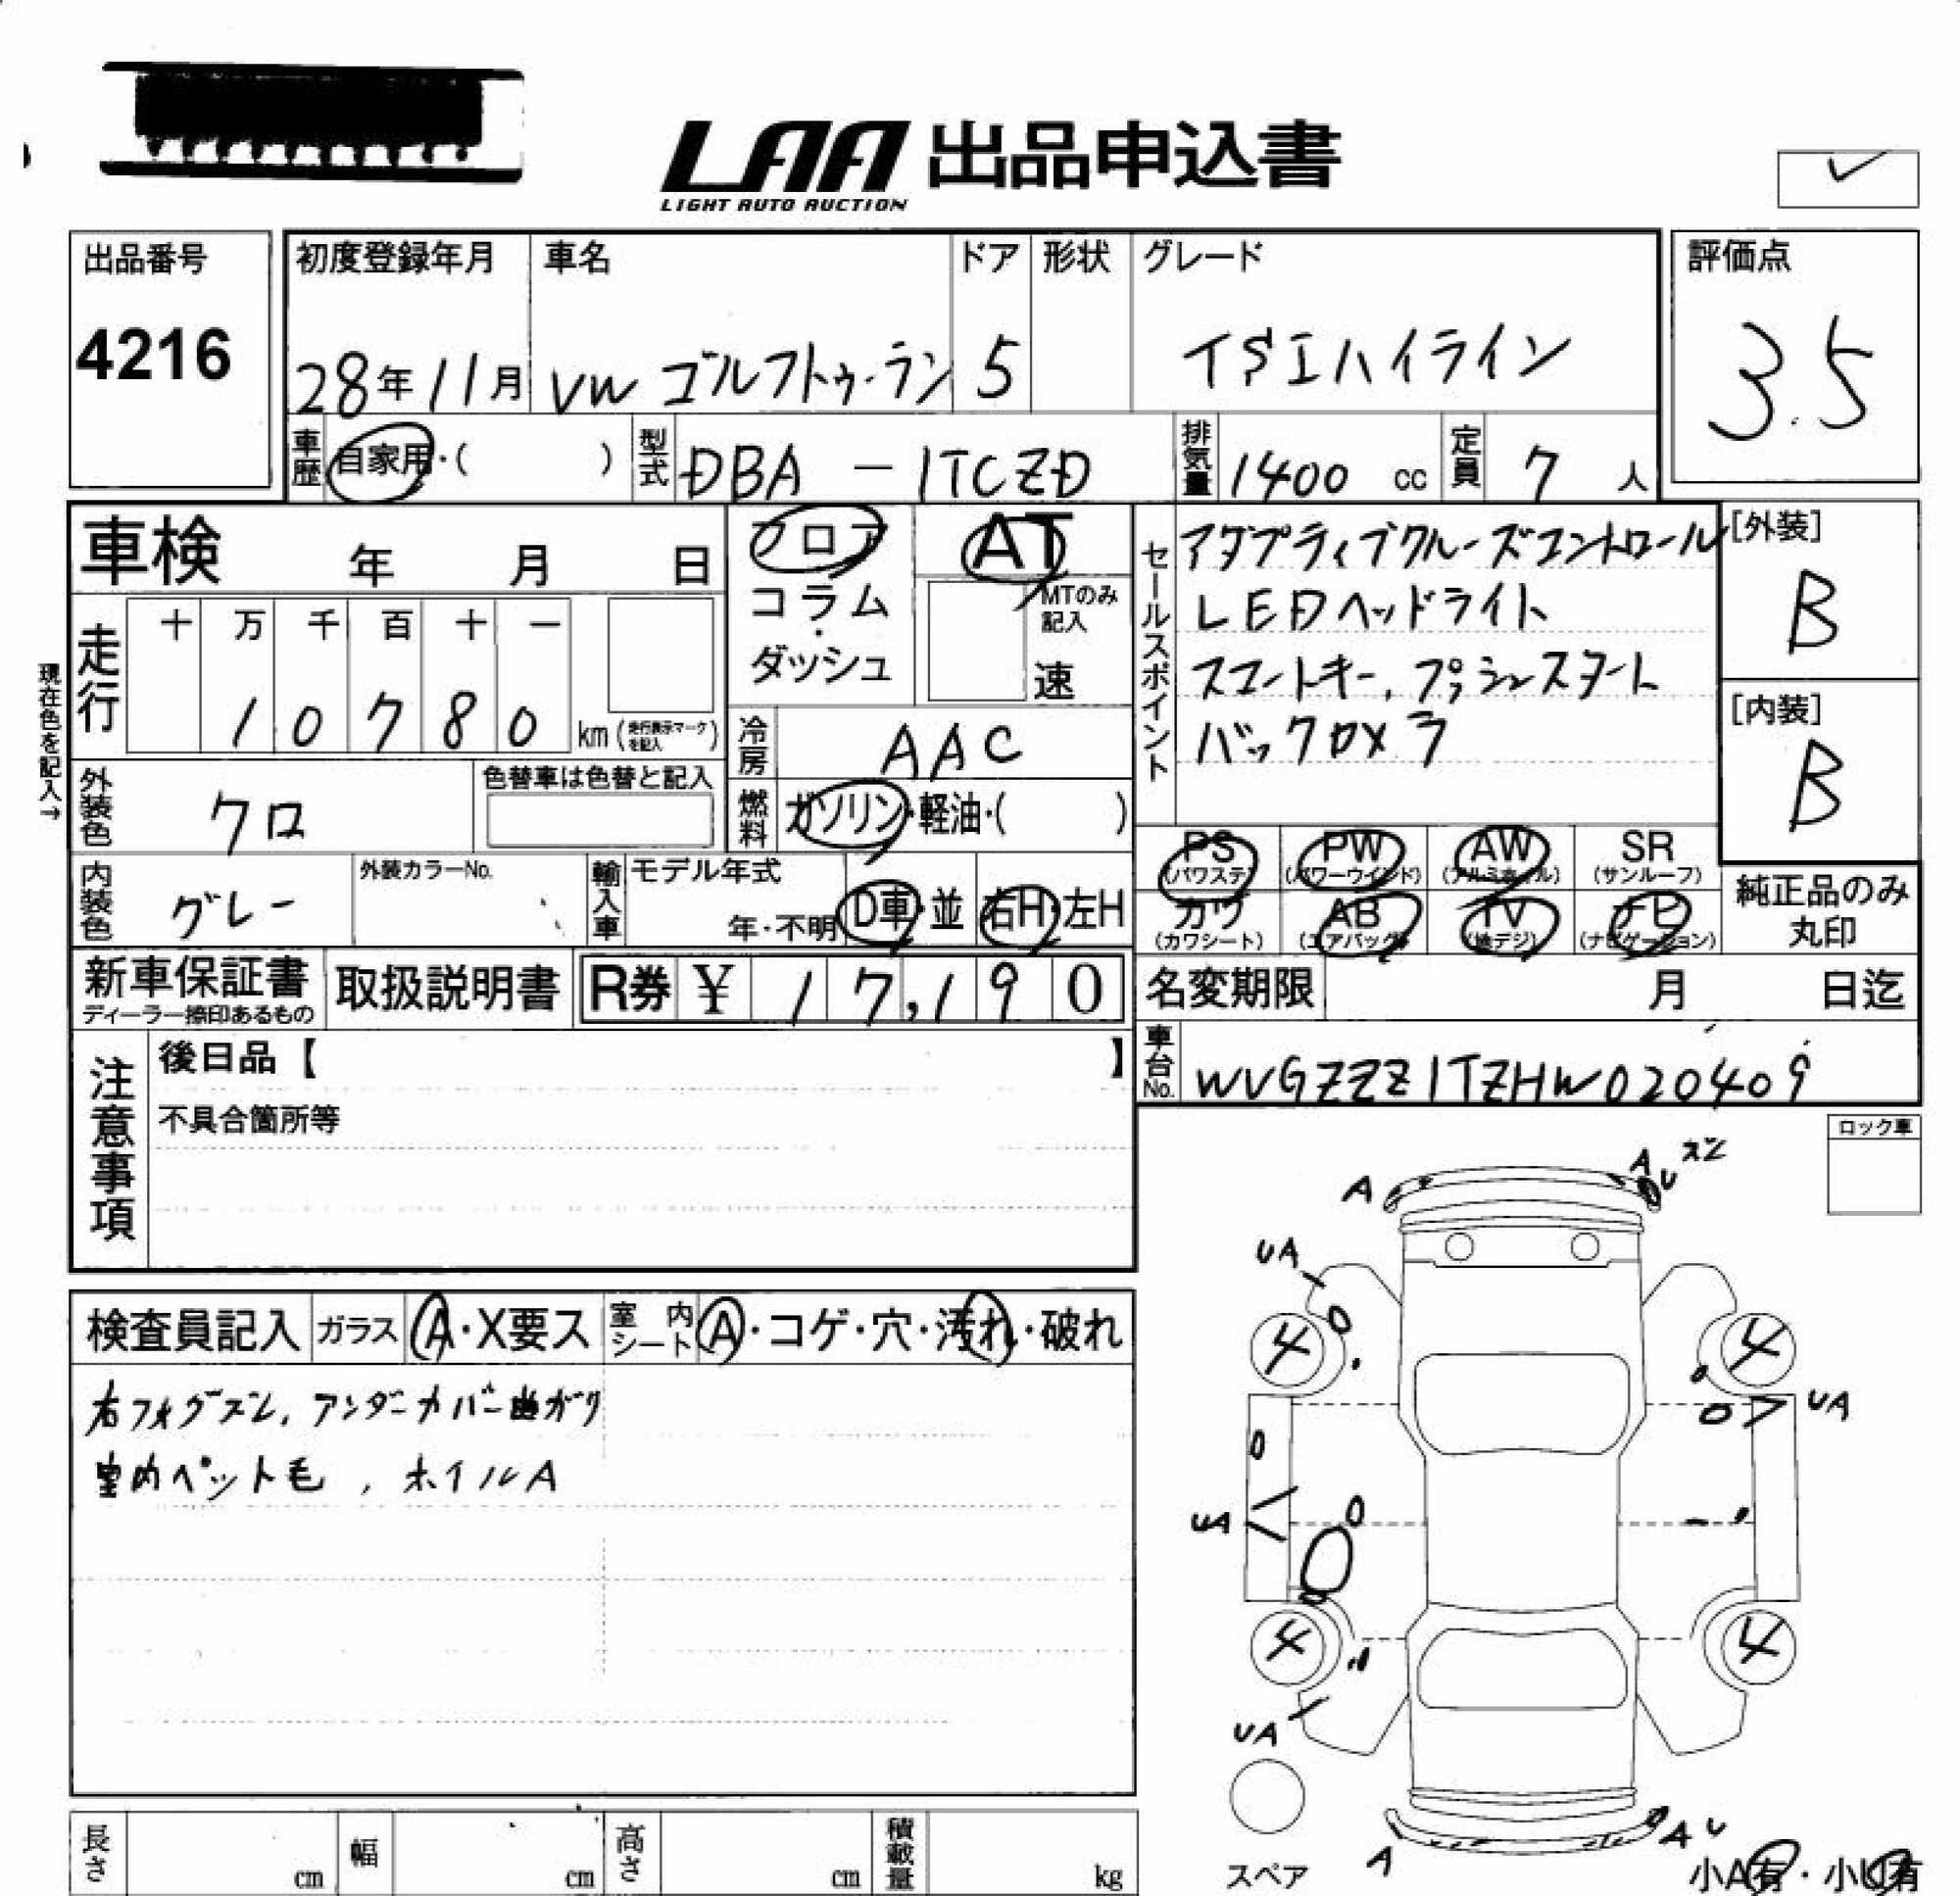 LAA 出品申込書
LIGHT AUTO AUCTION
出品番号
4216
初度登録年月 車名 ドア 形状 グレード
28年11月 VW ゴルフトゥーラン 5 TSIハイライン
評価点
3.5
車歴 自家用・( ) 型式 DBA-1TCZD 排気量 1400 cc 定員 7 人
車検 年 月 日
走行 十 万 千 百 十 一
1 0 7 8 0 km (走行表示マークを記入)
現在色を記入→
外装色 クロ 色替車は色替と記入
内装色 グレー 外装カラーNo.
フロア
コラム
・
ダッシュ
AT
MTのみ記入
速
冷房 AAC
燃料 ガソリン・軽油・( )
輸入車 モデル年式 年・不明 D車・並 右H・左H
セールスポイント
アダプティブクルーズコントロール
LEDヘッドライト
スマートキー、プッシュスタート
バックカメラ
[外装]
B
[内装]
B
PS (パワステ) PW (パワーウインド) AW (アルミホイル) SR (サンルーフ)
カワ (カワシート) AB (エアバッグ) TV (地デジ) ナビ (ナビゲーション)
純正品のみ
丸印
新車保証書
ディーラー捺印あるもの
取扱説明書 R券 ¥ 17,190
名変期限 月 日迄
車台No. WVGZZZ1TZHW020409
注意事項
後日品【 】
不具合箇所等
検査員記入 ガラス A・X要ス 室内シート A・コゲ・穴・汚れ・破れ
右フォグズレ、アンダーカバー曲がり
室内ペット毛、ホイルA
ロック車
A
A U ズレ
UA
4 4
UA
UA
4 4
UA
スペア
A
A U
小A有・小U有
長さ cm 幅 cm 高さ cm 積載量 kg